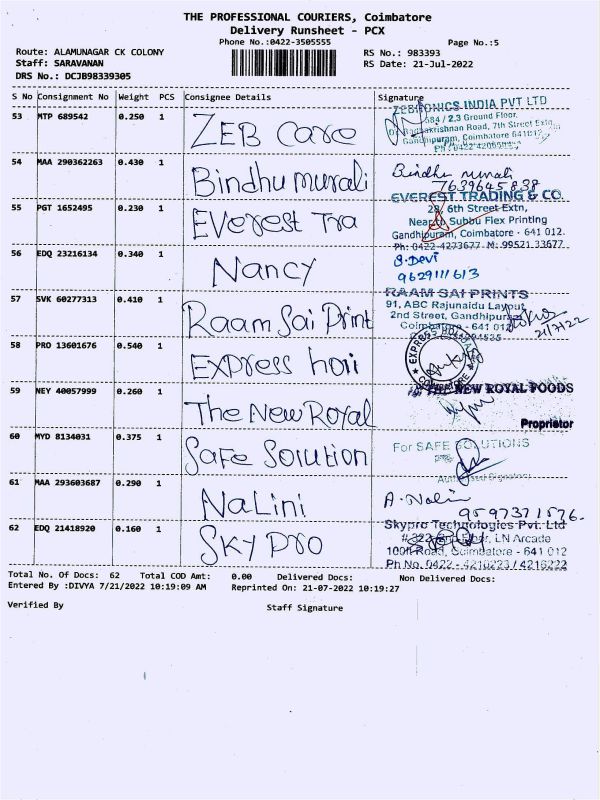 THE PROFESSIONAL COURIERS, Coimbatore
Delivery Runsheet - PCX
Phone No.:0422-3505555
Page No.:5
Route: ALAMUNAGAR CK COLONY
RS No.: 983393
Staff: SARAVANAN
RS Date: 21-Jul-2022
DRS No.: DCJB98339305
S No Consignment No Weight PCS Consignee Details Signature
53 MTP 689542 0.250 1 ZEB Care
ZEBRONICS INDIA PVT LTD
684 / 2,3 Ground Floor,
Radhakrishnan Road, 7th Street Extn,
Gandhipuram, Coimbatore 641012
54 MAA 290362263 0.430 1 Bindhu murali
Bindhu murali
7639645838
55 PGT 1652495 0.230 1 Everest Tra
EVEREST TRADING & CO
28, 6th Street Extn,
Near Subbu Flex Printing
Gandhipuram, Coimbatore - 641 012.
Ph: 0422-4273677 M: 99521 33677
56 EDQ 23216134 0.340 1 Nancy
S. Devi
9629111613
57 SVK 60277313 0.410 1 Raam Sai Print
RAAM SAI PRINTS
91, ABC Rajunaidu Layout,
2nd Street, Gandhipuram
Coimbatore - 641 012
21/7/22
58 PRO 13601676 0.540 1 Express hou
EXPRESS
59 NEY 40057999 0.260 1 The New Royal
THE NEW ROYAL FOODS
Proprietor
60 MYD 8134031 0.375 1 Safe Solution
For SAFE SOLUTIONS
Authorised Signatory
61 MAA 293603687 0.290 1 Nalini
A. Nalini
9597371576.
62 EDQ 21418920 0.160 1 Sky pro
Skypro Technologies Pvt. Ltd
# 322, 2nd Floor, LN Arcade
100ft Road, Coimbatore - 641 012
Ph No. 0422 - 4216223 / 4216222
Total No. Of Docs: 62 Total COD Amt: 0.00 Delivered Docs: Non Delivered Docs:
Entered By :DIVYA 7/21/2022 10:19:09 AM Reprinted On: 21-07-2022 10:19:27
Verified By Staff Signature